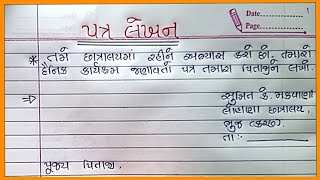 પત્ર લેખન
Date
Page
* તમે છાત્રાલયમાં રહીને અભ્યાસ કરો છો. તમારો
દૈનિક કાર્યક્રમ જણાવતો પત્ર તમારા પિતાજીને લખો.
⇒ સુમિત કે. મકવાણા
લોહાણા છાત્રાલય,
ભુજ (કચ્છ)
તા:-
પૂજ્ય પિતાજી,